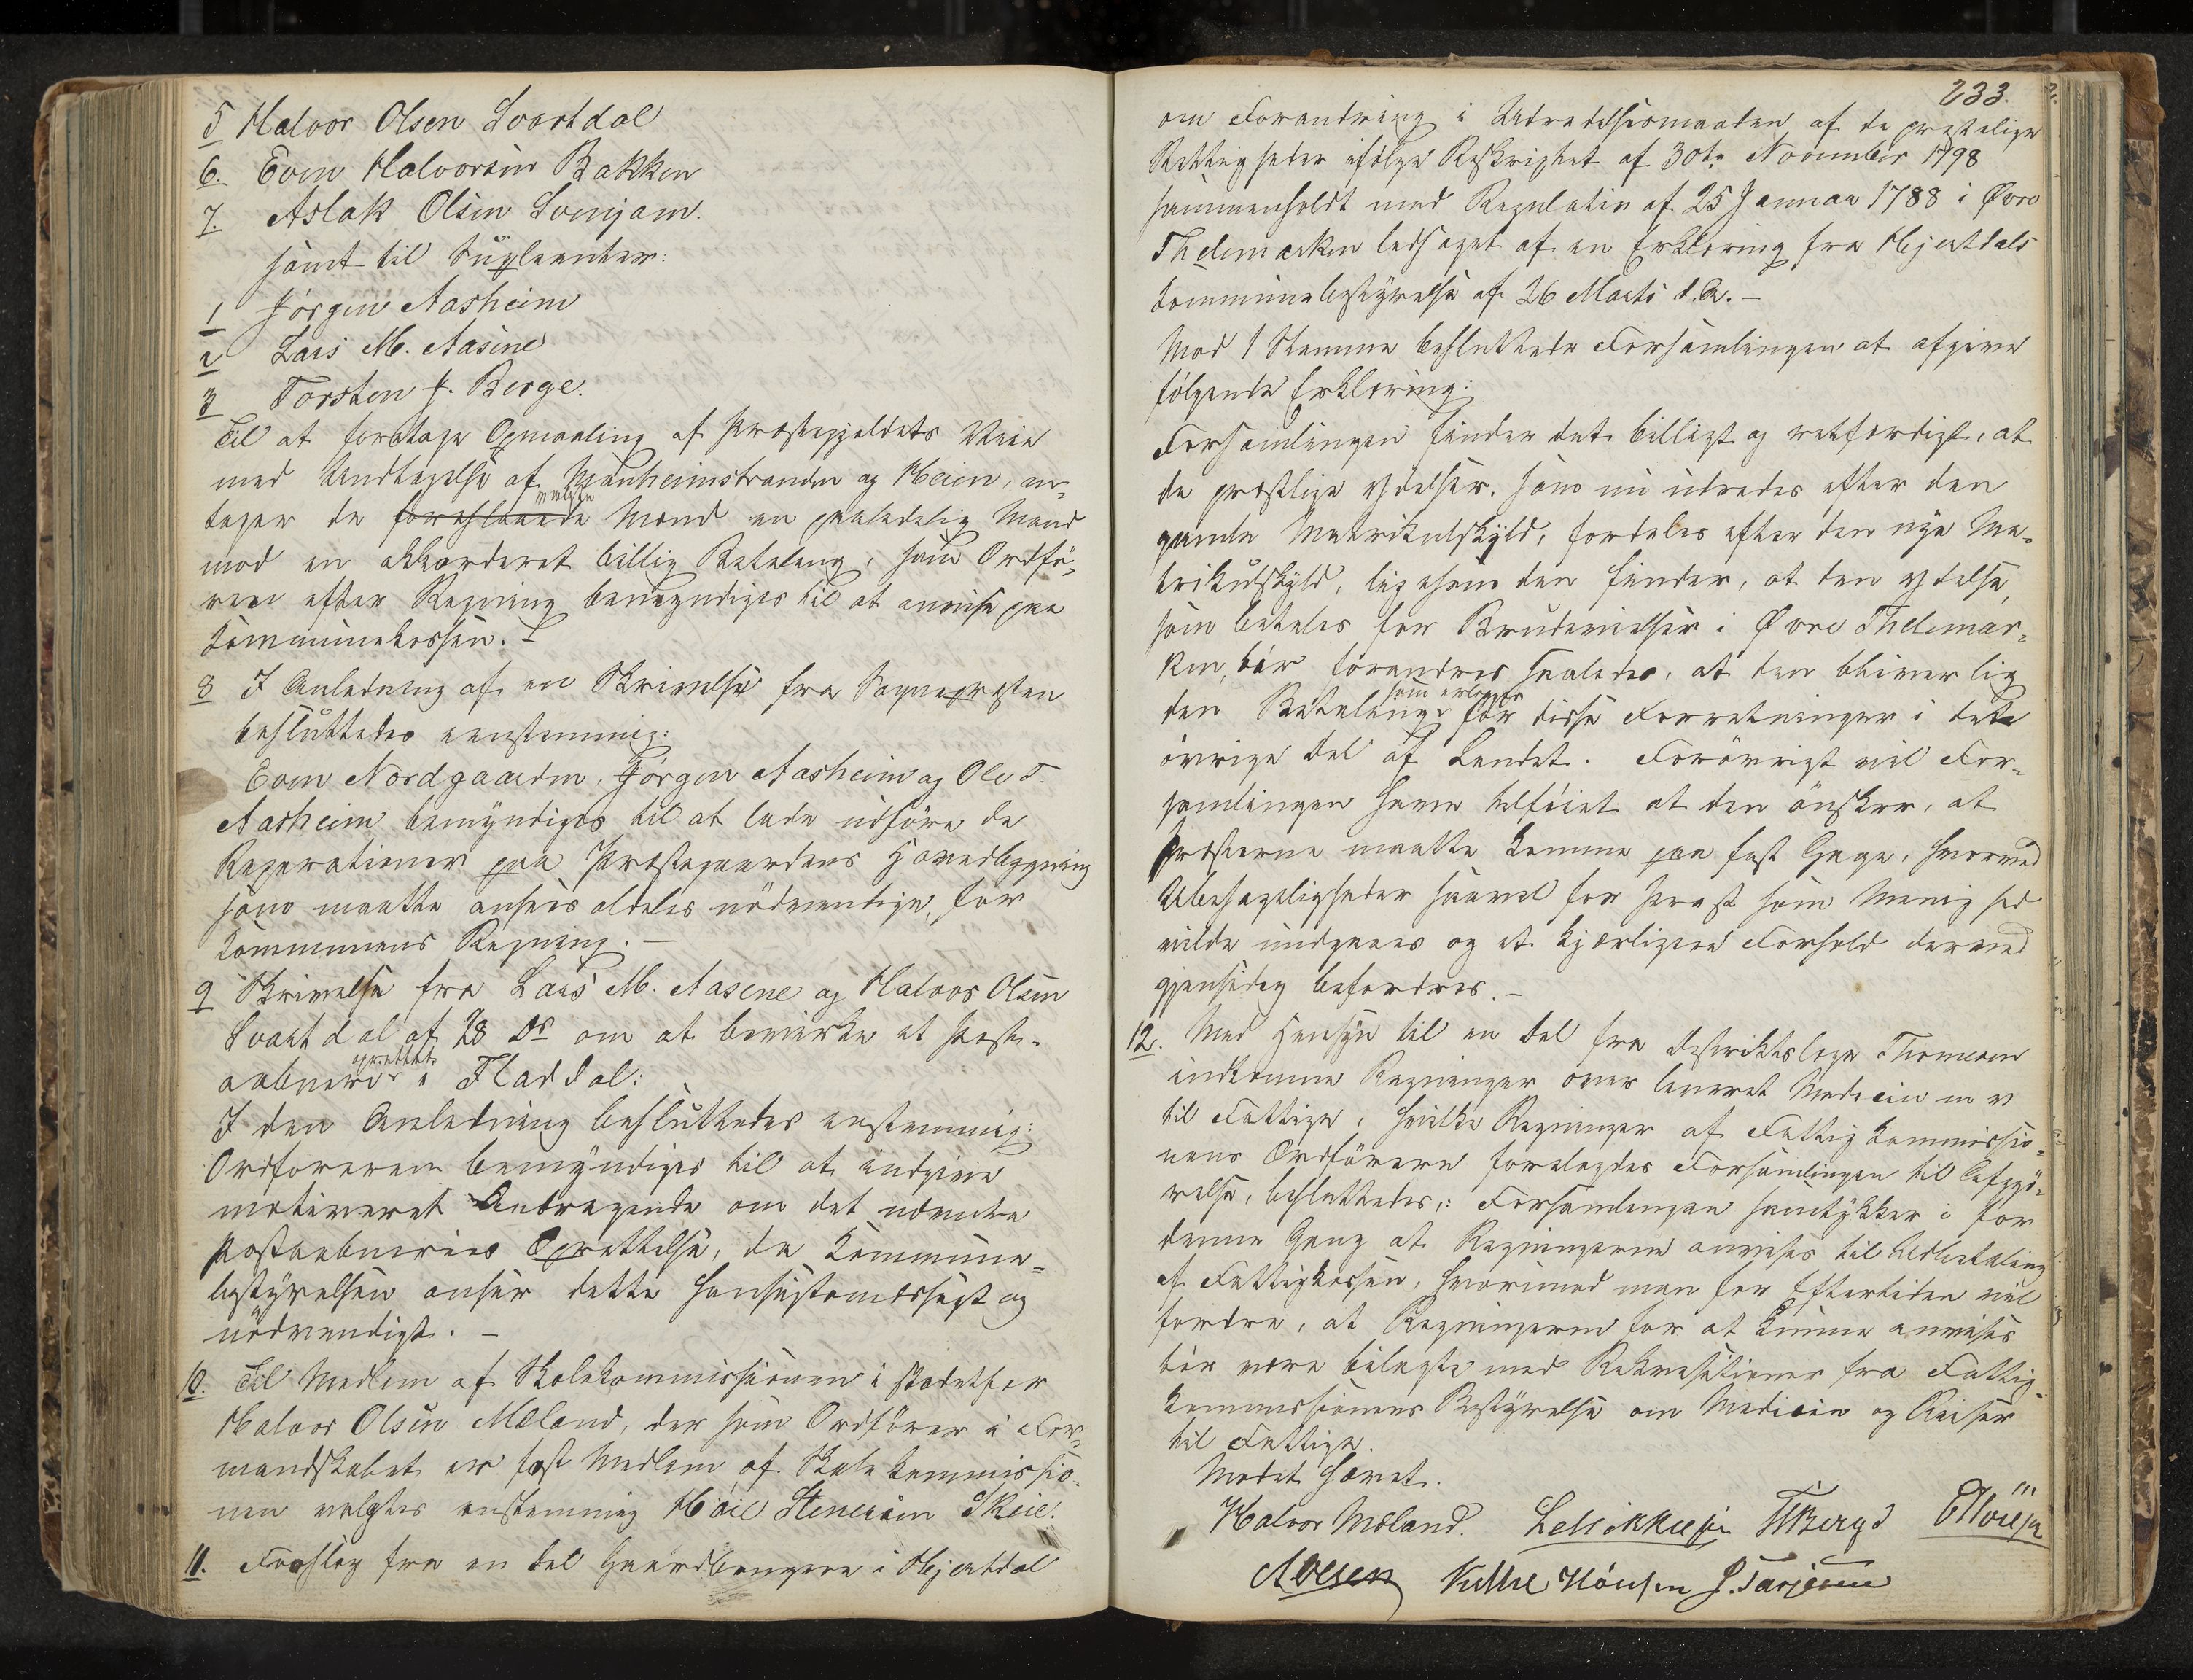 5 Halvor Olsen Svartdal
6. Even Halvorsen Bakken
7. Aslak Olsen Svenjam.
samt til Supleanter:
1 Jörgen Aasheim
2 Lars M. Aasine
3 Torsten J. Berge.
Til at foretage Opmaaling af Præstegjeldets Veie
med Undtagelse af Manheimstranden og Heien, an-
tager de foreslaaede valgte Mænd en paalidelig Mand
mod en akkorderet billig Betaling, som Ordfö-
reren efter Regning bemyndiges til at anvise paa
Kommunekassen. –
8 I Anledning af en Skrivelse fra Sognepræsten
besluttedes eenstemmig:
Even Nordgaarden, Jörgen Aasheim og Ole T.
Aasheim bemyndiges til at lade udföre de
Reparationer paa Præstegaardens Hovedbygning
som maatte ansees aldeles nödvendige, for
Kommunens Regning. –
9 Skrivelse fra Lars M. Aasene og Halvor Olsen
Svartdal af 28 Ds om at bevirke et Post-
aabneri oprettet i Flatdal:
I den Anledning besluttedes enstemmig:
Ordföreren bemyndiges til at indgive
motiveret Andragende om det nævnte
Postaabneries Oprettelse, da Kommune-
bestyrelsen anser dette hensigtsmæssigt og
nödvendigt. –
10. Til Medlem af Skolekommissionen i Stedet for
Halvor Olsen Mæland, der som Ordförer i For-
mandskabet er fast Medlem af Skolekommissio-
nen valgtes enstemmig Höie Stenersen Skeie.
11. Forslag fra en Del Gaardbrugere i Hjertdal
233.
om Forandring i Udredelsesmaaden af de prestelige
Rettigheder ifölge Reskriptet af 30te November 1798
sammenholdt med Regulativ af 25 Januar 1788 i Øvre
Thelemarken ledsaget af en Erklæring fra Hjertdals
Kommunebestyrelse af 26 Marts d.A. –
Mod 1 Stemme besluttede Forsamlingen at afgive
fölgende Erklæring:
Forsamlingen finder det billigt og retfærdigt, at
de præstlige Ydelser, som nu udredes efter den
gamle Matrikulskyld, fordeles efter den nye Ma-
trikulskyld, ligesom den finder, at den Ydelse,
som betales for Brudevielser i Øvre Thelemar-
ken, bör forandres saaledes, at den bliver lig
den Betaling som erlægges for disse Forretninger i det
övrige Del af Landet. Forövrigt vil For-
samlingen have tilföiet at den önsker, at
Præsterne maatte komme paa fast Gage, hvorved
Ubehageligheder saavel for Præst som Menighed
vilde undgaaes og et kjærligere Forhold derved
gjensidig befordres. –
12. Med Hensyn til en Del fra Distriktslæge Thomesen
indkomne Regninger over leveret Medicin m v
til Fattige, hvilke Regninger af Fattigkommissio-
nens Ordförere forelagdes Forsamlingen til Afgjö-
relse, besluttedes: Forsamlingen samtykker i for
denne Gang at Regningerne anvises til Udbetaling
af Fattigkassen, hvorimod man for Eftertiden vil
fordre, at Regningerne for at kunne anvises
bör være bilagte med Rekvisitioner fra Fattig-
kommissionens Bestyrelse om Medicin og Reiser
til Fattige.
Mödet hævet.
Halvor Mæland. TBerge
AOlsen J. Tarjesen